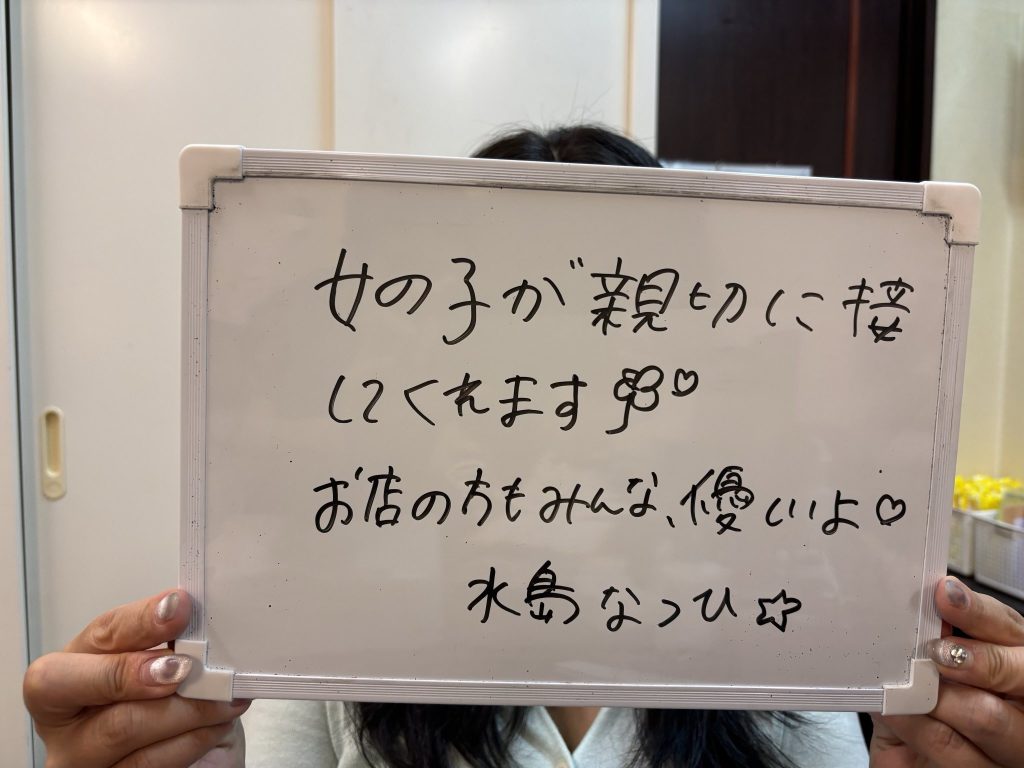 女の子が親切に接
してくれます♡
お店の方もみんな、優しいよ♡
水島なつひ☆